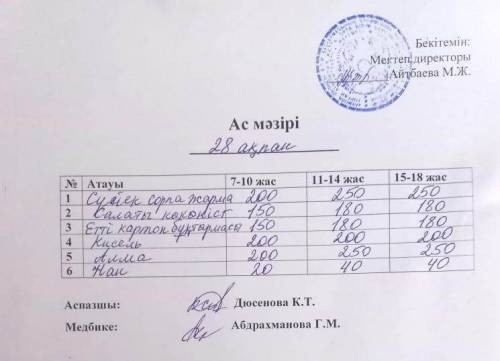 Бекітемін:
Мектеп директоры
Айтбаева М.Ж.
Ас мәзірі
28 ақпан
№ Атауы 7-10 жас 11-14 жас 15-18 жас
1 Сүйек сорпа жарма 200 250 250
2 Салаты көкөніс 150 180 180
3 Етті картоп бұқтырмасы 150 180 180
4 Кисель 200 200 200
5 Алма 200 250 250
6 Нан 20 40 40
Аспазшы: Дюсенова К.Т.
Медбике: Абдрахманова Г.М.